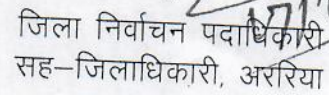 जिला निर्वाचन पदाधिकारी
सह–जिलाधिकारी, अररिया